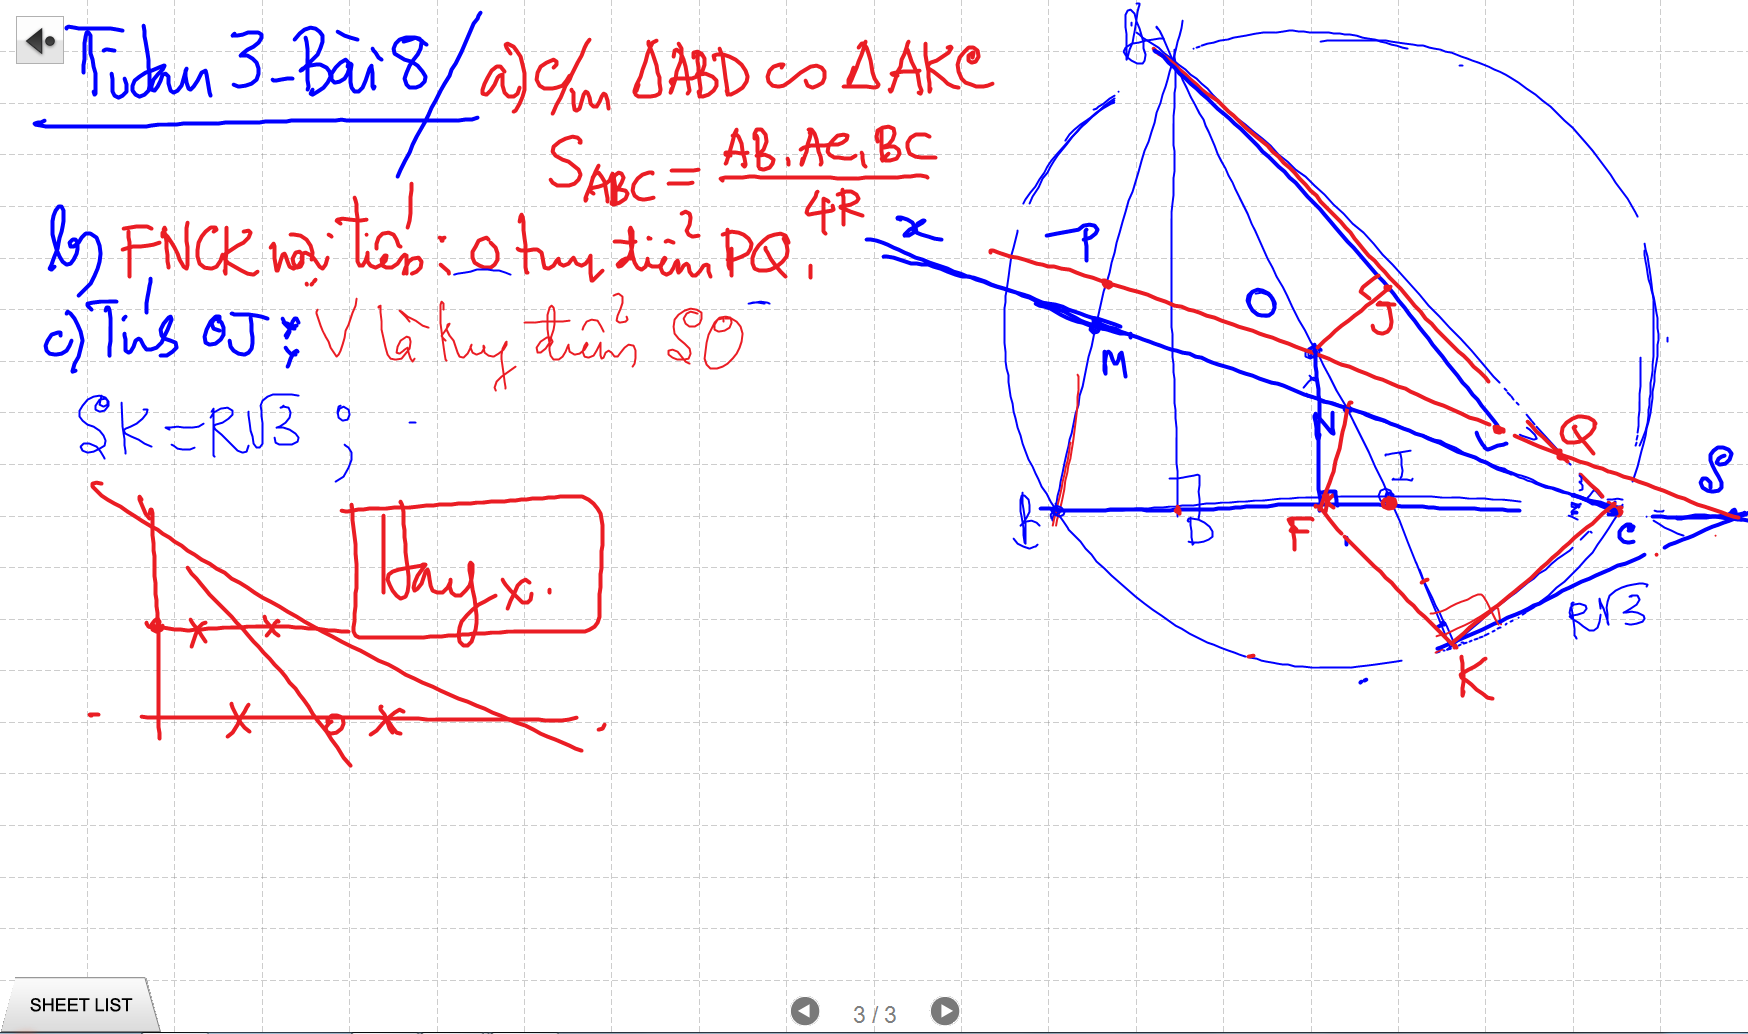 Tuần 3 - Bài 8
a) c/m ΔABD ∽ ΔAKC
S_ABC = AB.AC.BC / 4R
b) FNCK nội tiếp; O trung điểm PQ.
c) Tính OJ: V là trung điểm SO
SK = R√3 ;
Hay x.
A
x
P
O
J
M
N
L
Q
I
S
B
D
F
C
R√3
K
SHEET LIST
3 / 3